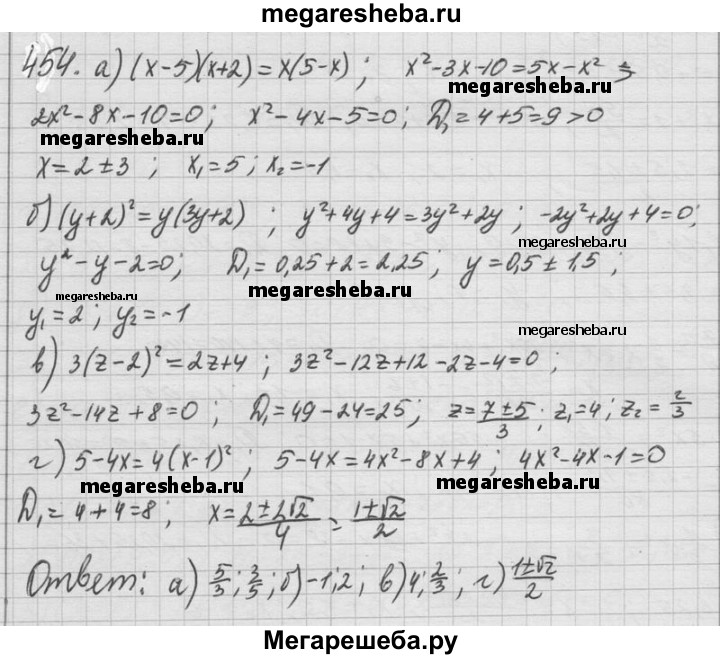 megaresheba.ru
454. а) (x-5)(x+2)=x(5-x); x²-3x-10=5x-x²
2x²-8x-10=0; x²-4x-5=0; D₁=4+5=9>0
megaresheba.ru megaresheba.ru
x=2±3; x₁=5; x₂=-1
б) (y+2)²=y(3y+2); y²+4y+4=3y²+2y; -2y²+2y+4=0;
megaresheba.ru
y²-y-2=0; D₁=0,25+2=2,25; y=0,5±1,5;
megaresheba.ru megaresheba.ru
y₁=2; y₂=-1
megaresheba.ru
в) 3(z-2)²=2z+4; 3z²-12z+12-2z-4=0;
3z²-14z+8=0; D₁=49-24=25; z=(7±5)/3; z₁=4; z₂=2/3
г) 5-4x=4(x-1)²; 5-4x=4x²-8x+4; 4x²-4x-1=0
megaresheba.ru megaresheba.ru
D₁=4+4=8; x=(2±2√2)/4=(1±√2)/2
Ответ: а) 5/3; 3/5; б)-1; 2; в)4; 2/3; г) (1±√2)/2
megaresheba.ru
Мегарешеба.ру